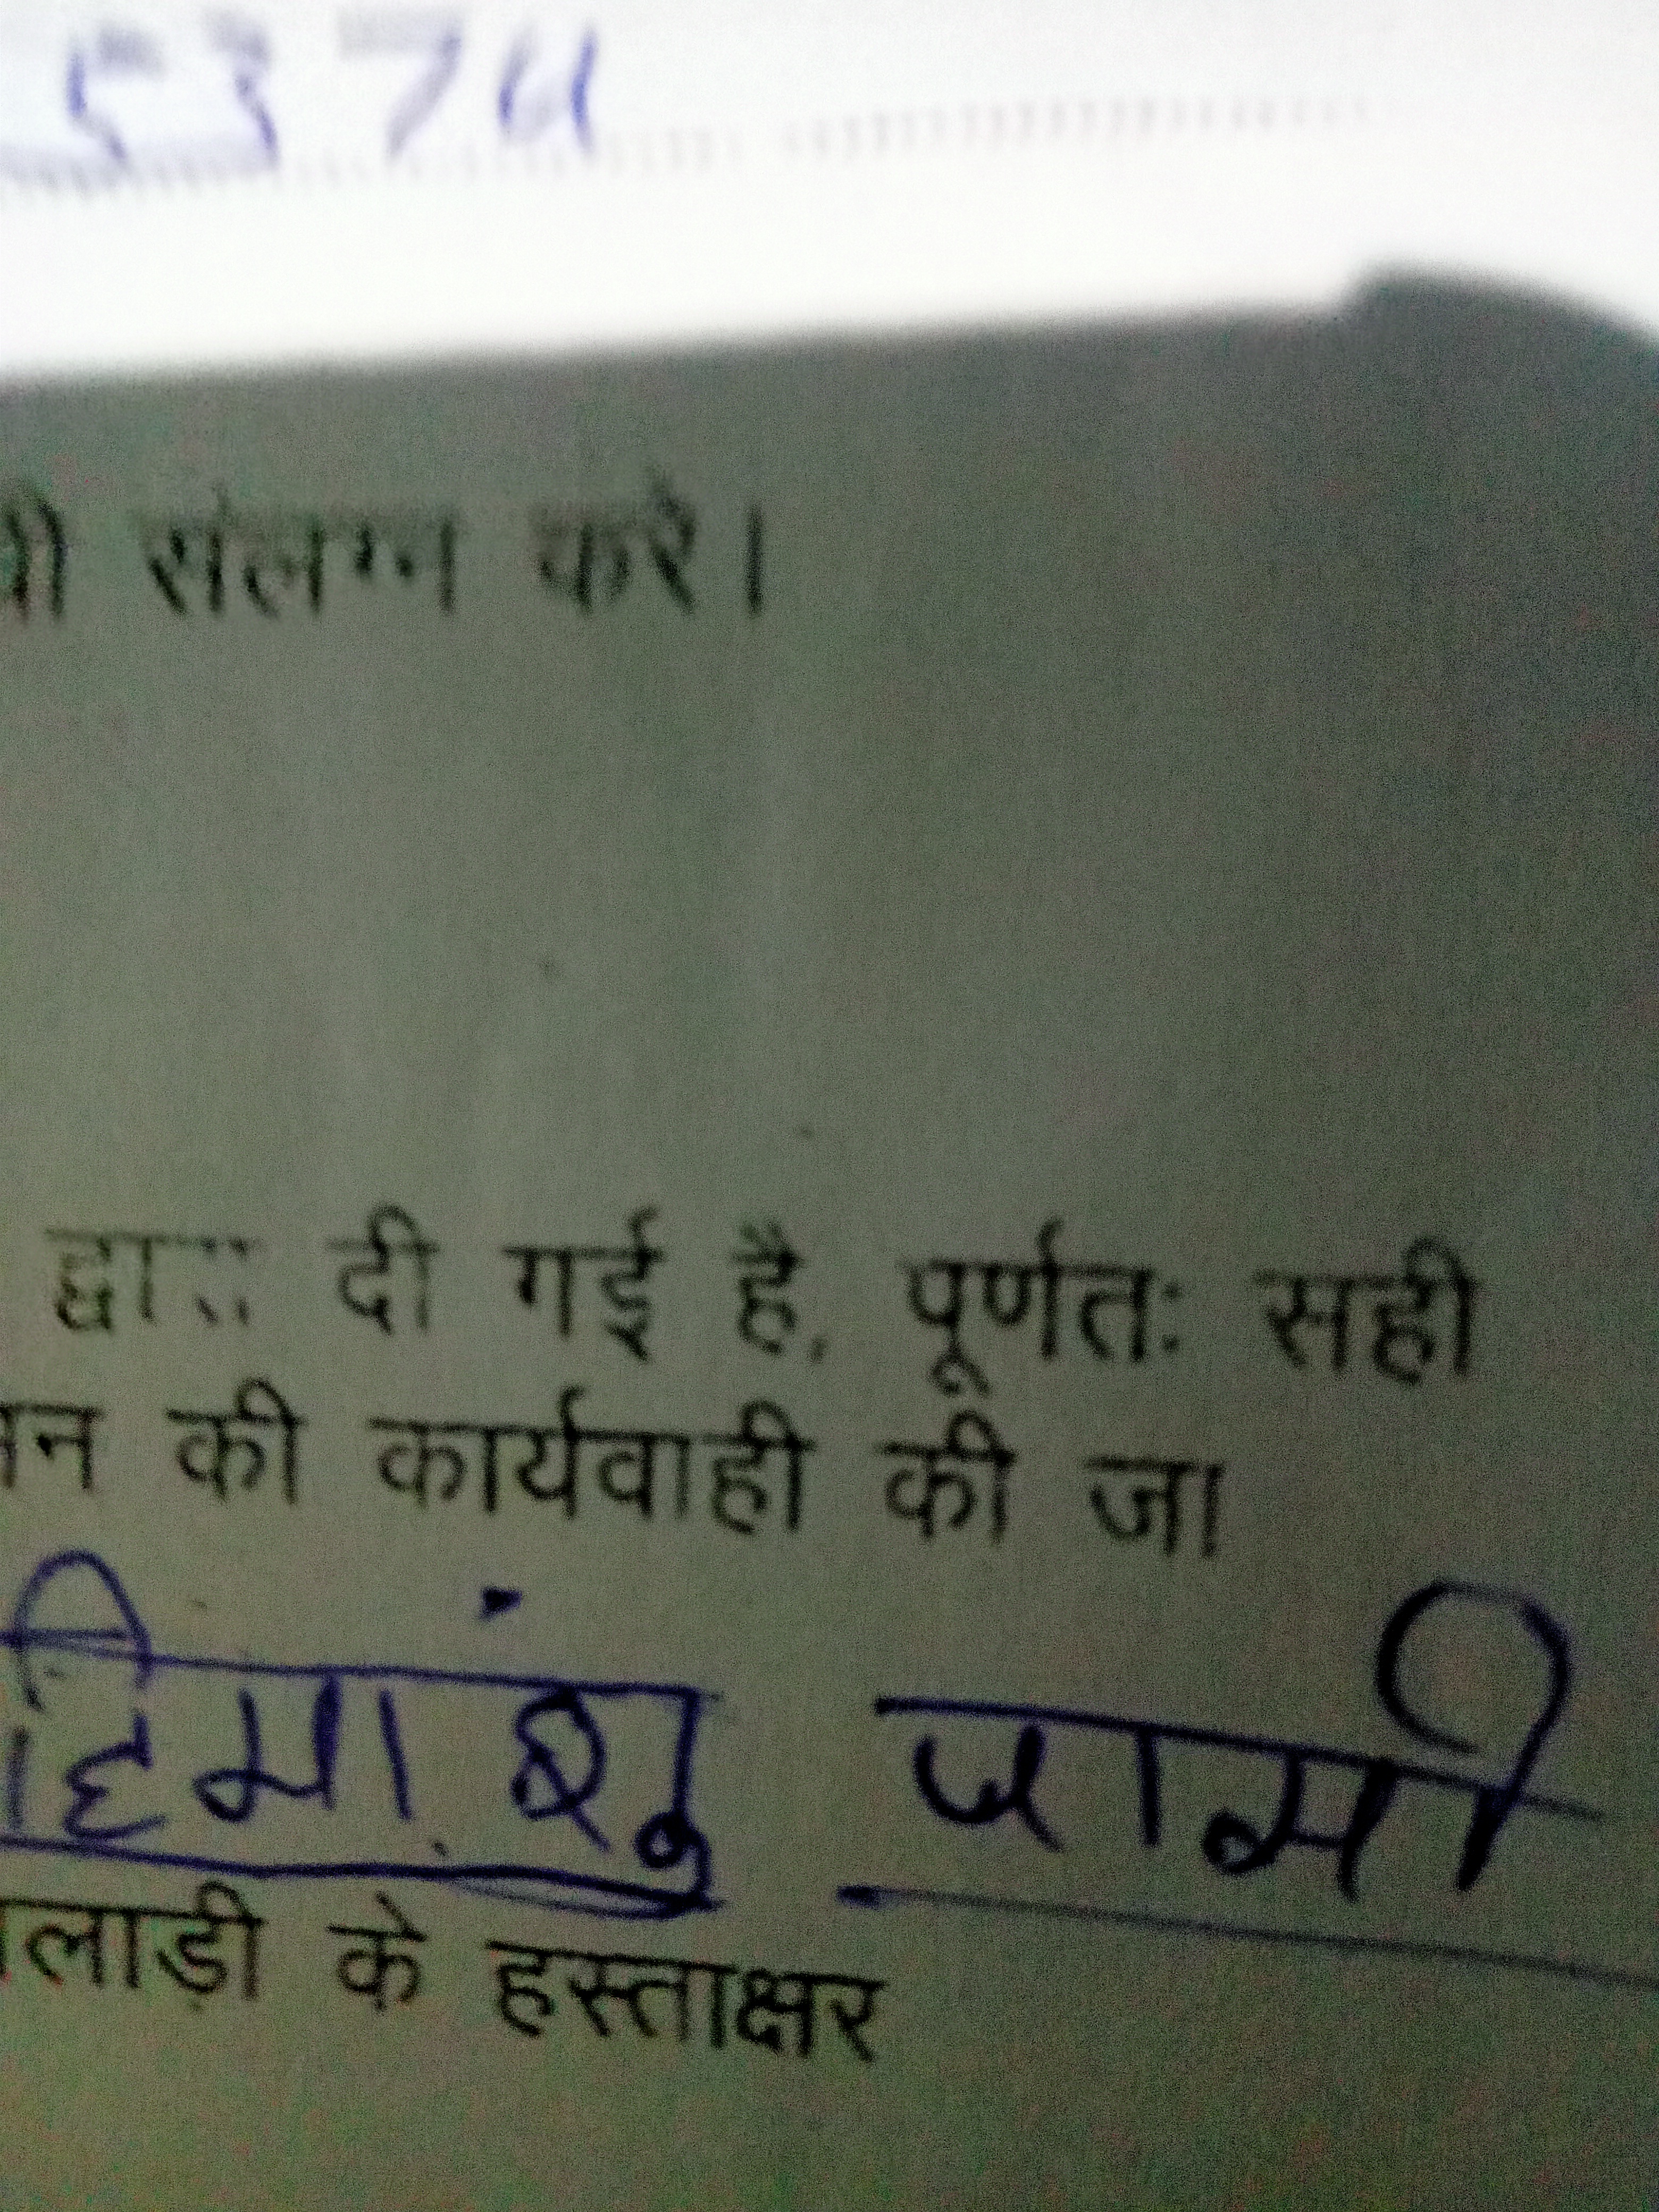 संलग्न करे।
द्वारा दी गई है, पूर्णतः सही
की कार्यवाही की जा
हिमांशु जामी
के हस्ताक्षर